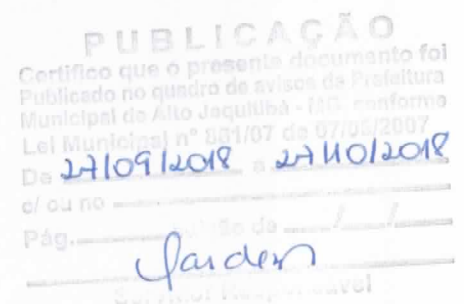 PUBLICAÇÃO
Certifico que o presente documento foi
Publicado no quadro de avisos da Prefeitura
Municipal de Alto Jequitibá - MG, conforme
Lei Municipal nº 881/07 de 07/05/2007
De 27/09/2018 a 27/10/2018
c/ ou no
Pág. de / /